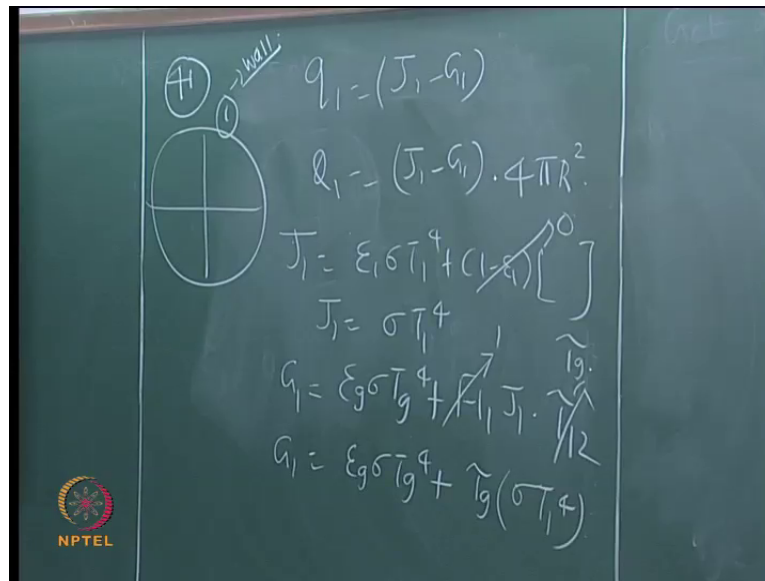 41
1 → wall.
q₁ = (J₁ - G₁)
Q₁ = (J₁ - G₁) · 4πR².
J₁ = ε₁σT₁⁴ + (1-ε₁)[ ] 0
J₁ = σT₁⁴
τ̃g.
G₁ = εgσTg⁴ + F₁₋₁ 1 J₁ · τ̃₁₂
G₁ = εgσTg⁴ + τ̃g(σT₁⁴)
NPTEL